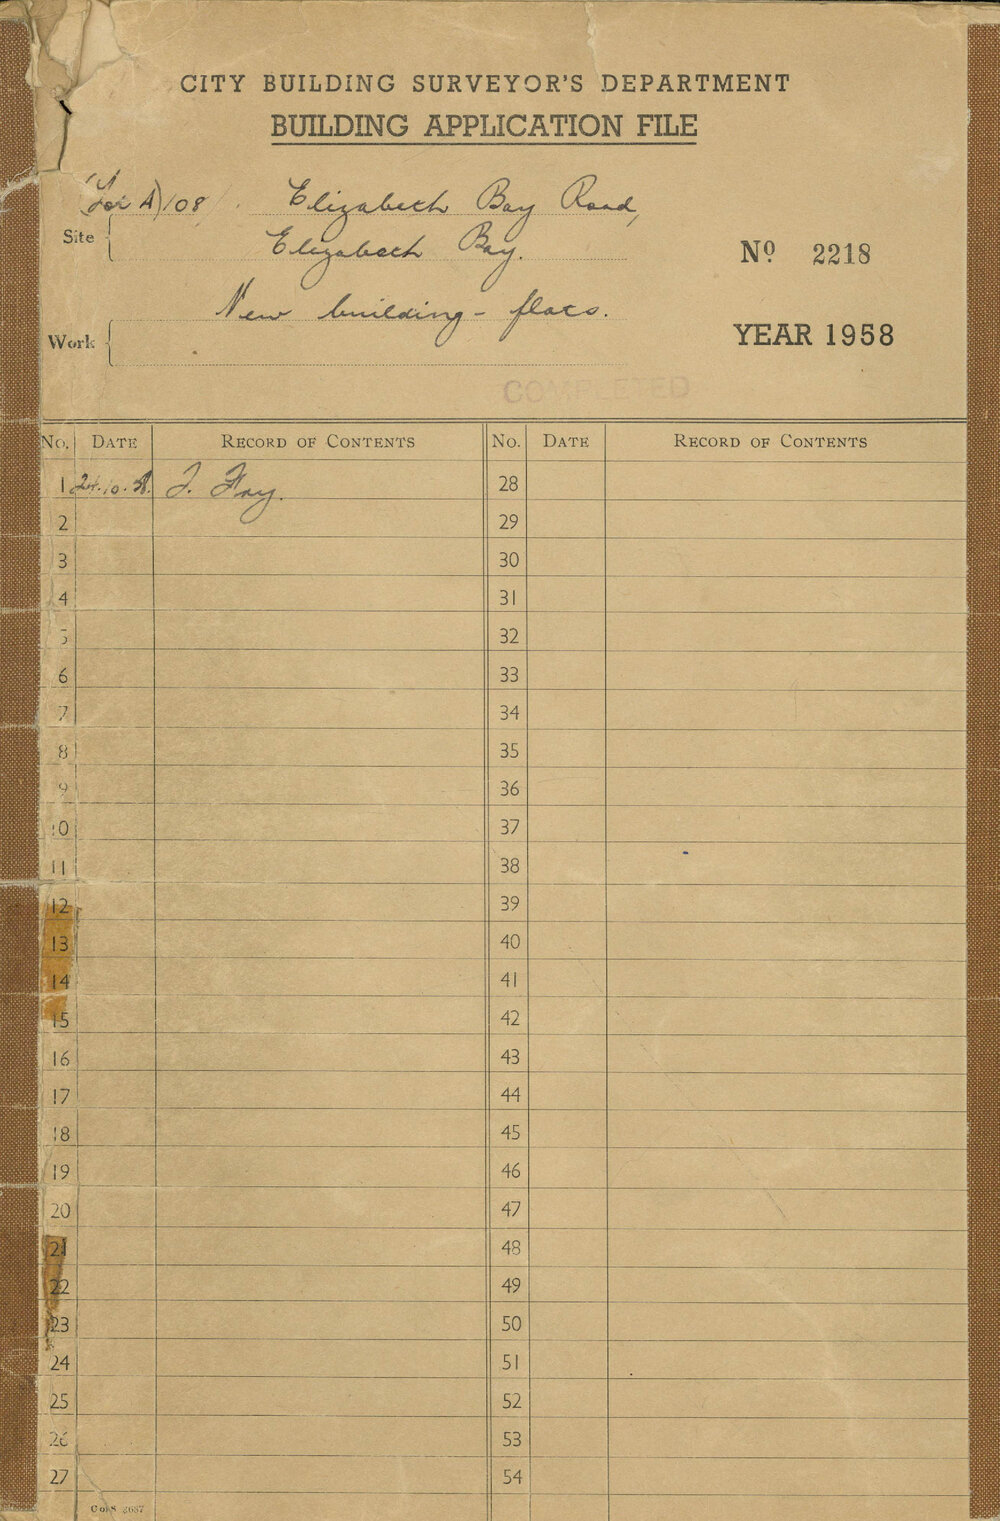 CITY BUILDING SURVEYOR'S DEPARTMENT
BUILDING APPLICATION FILE
(Lot A) 108 Elizabeth Bay Road,
Site
Elizabeth Bay.
Nº 2218
New building - flats.
Work
YEAR 1958
COMPLETED
No. DATE RECORD OF CONTENTS No. DATE RECORD OF CONTENTS
1 24.10.58. J. Fay. 28
2 29
3 30
4 31
5 32
6 33
7 34
8 35
9 36
10 37
11 38
12 39
13 40
14 41
15 42
16 43
17 44
18 45
19 46
20 47
21 48
22 49
23 50
24 51
25 52
26 53
27 54